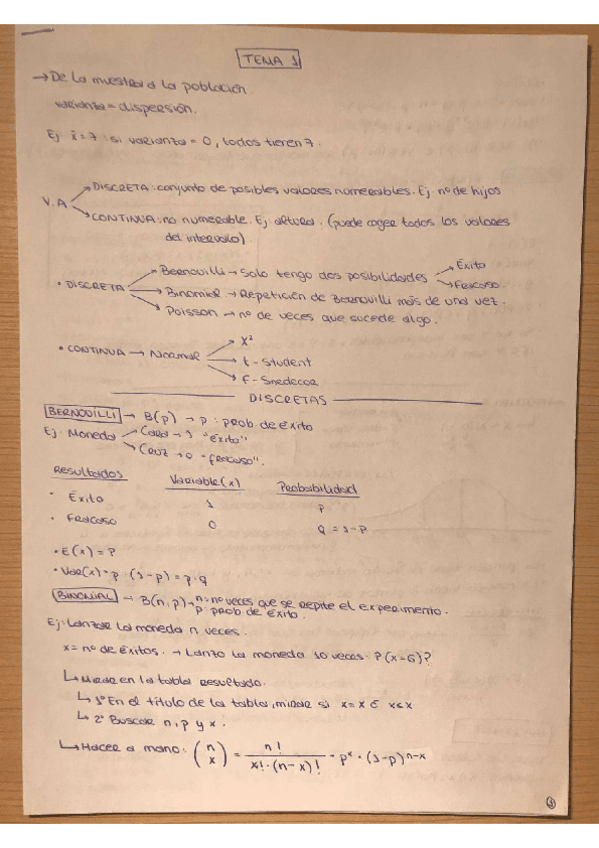 TEMA 1
→ De la muestra a la población.
varianza = dispersión.
Ej x̄ = 7 : si varianza = 0, todos tienen 7.
V.A
DISCRETA: conjunto de posibles valores numerables. Ej. nº de hijos
CONTINUA: no numerable. Ej. altura. (puede coger todos los valores
del intervalo)
• DISCRETA
Bernouilli → Solo tengo dos posibilidades
Éxito
Fracaso.
Binomial → Repetición de Bernouilli más de una vez.
Poisson → nº de veces que sucede algo.
• CONTINUA → Normal
X²
t - Student
F - Snedecor
DISCRETAS
BERNOUILLI → B(p) → p: prob. de éxito
Ej. Moneda
Cara → 1 "éxito"
Cruz → 0 "fracaso".
Resultados Variable (x) Probabilidad
• Éxito 1 p
• Fracaso 0 q = 1-p
• E(x) = P
• Var(x) = p · (1-p) = p·q
BINOMIAL → B(n,p) → n: nº veces que se repite el experimento.
p: prob de éxito.
Ej: Lanzar la moneda n veces.
x = nº de éxitos. → Lanzo la moneda 10 veces. P(x=6)?
↳ Mirar en la tabla resultado.
↳ 1º En el título de la tabla, mirar si x=x ó x≤x
↳ 2º Buscar n, p y x.
↳ Hacer a mano: (n x) = n! / x! · (n-x)! · pˣ · (1-p)ⁿ⁻ˣ